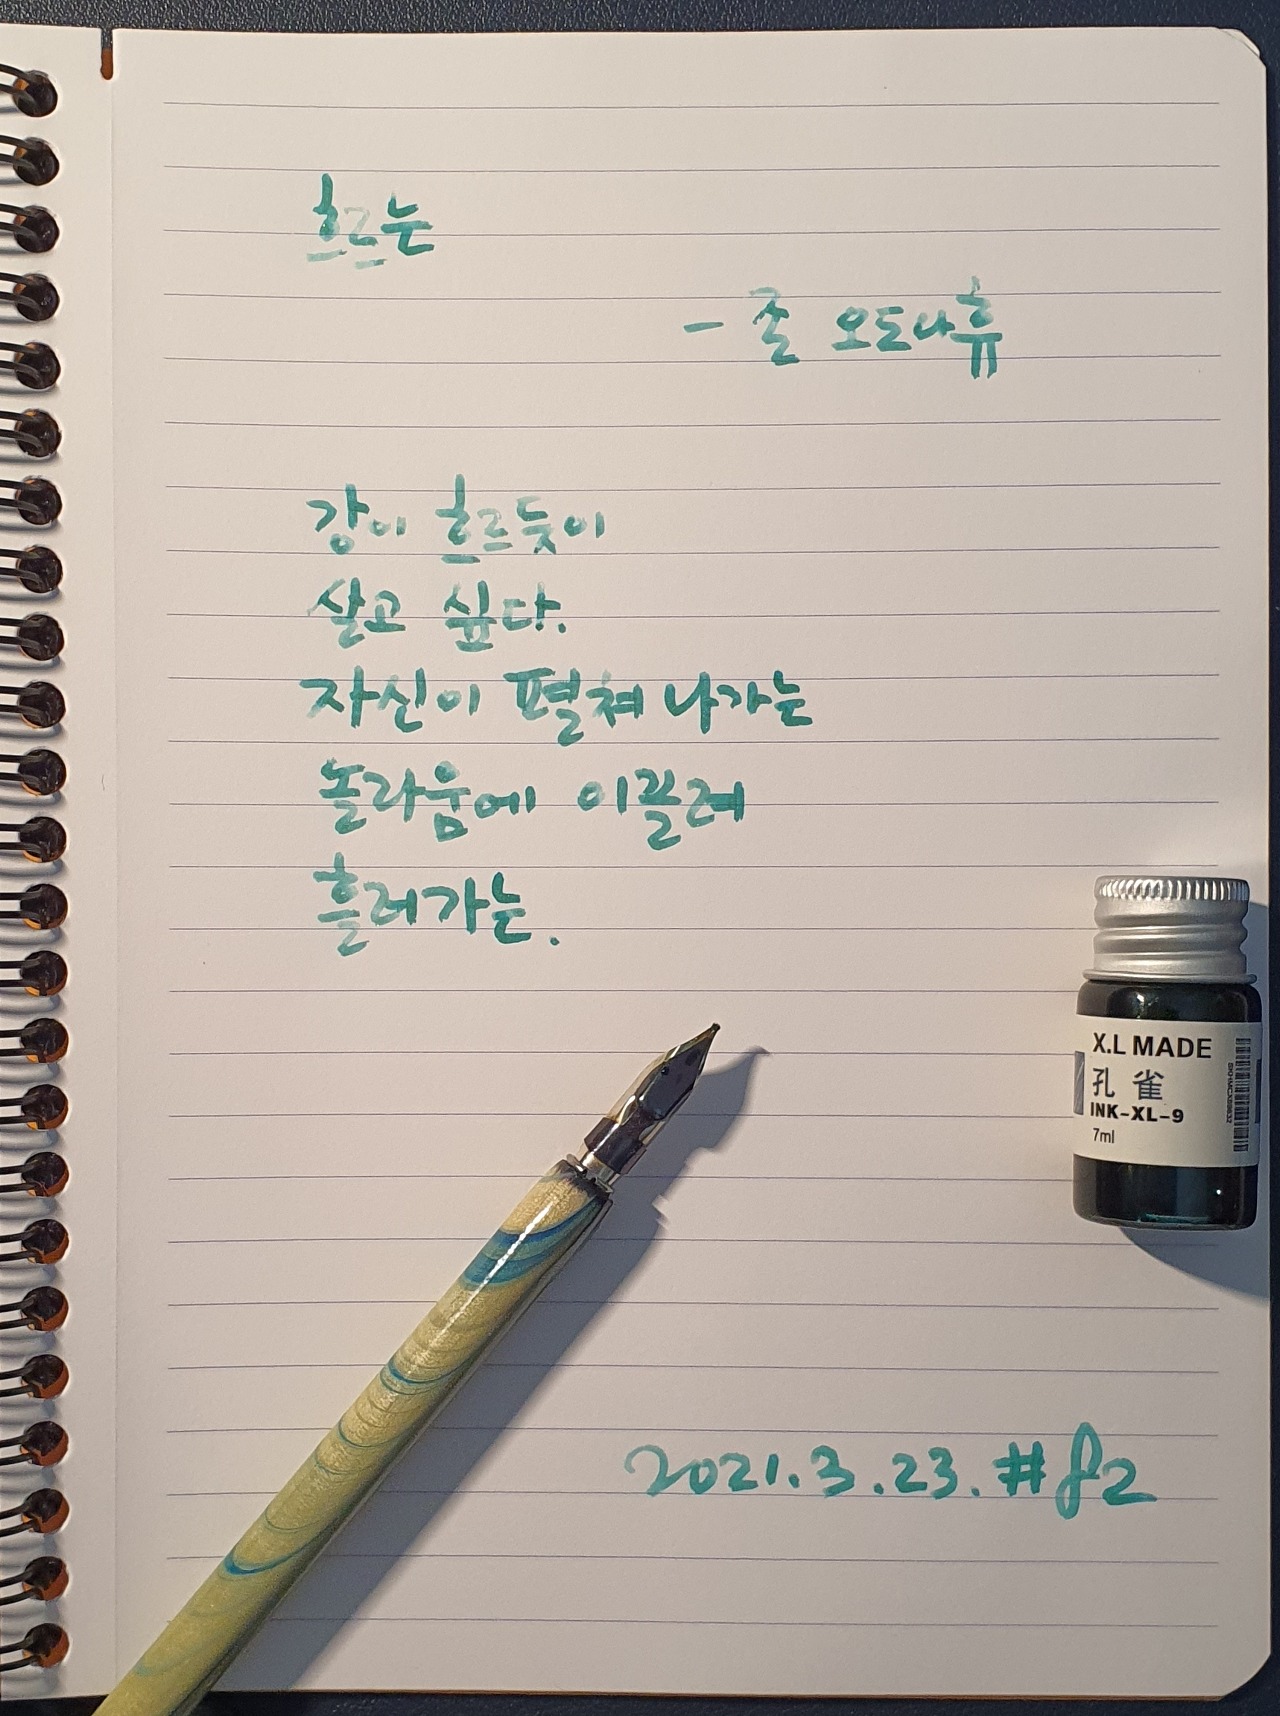 흐르는
- 존 오도나휴
강이 흐르듯이
살고 싶다.
자신이 펼쳐 나가는
놀라움에 이끌려
흘러가는.
X.L MADE
孔 雀
INK-XL-9
7ml
2021.3.23. #82